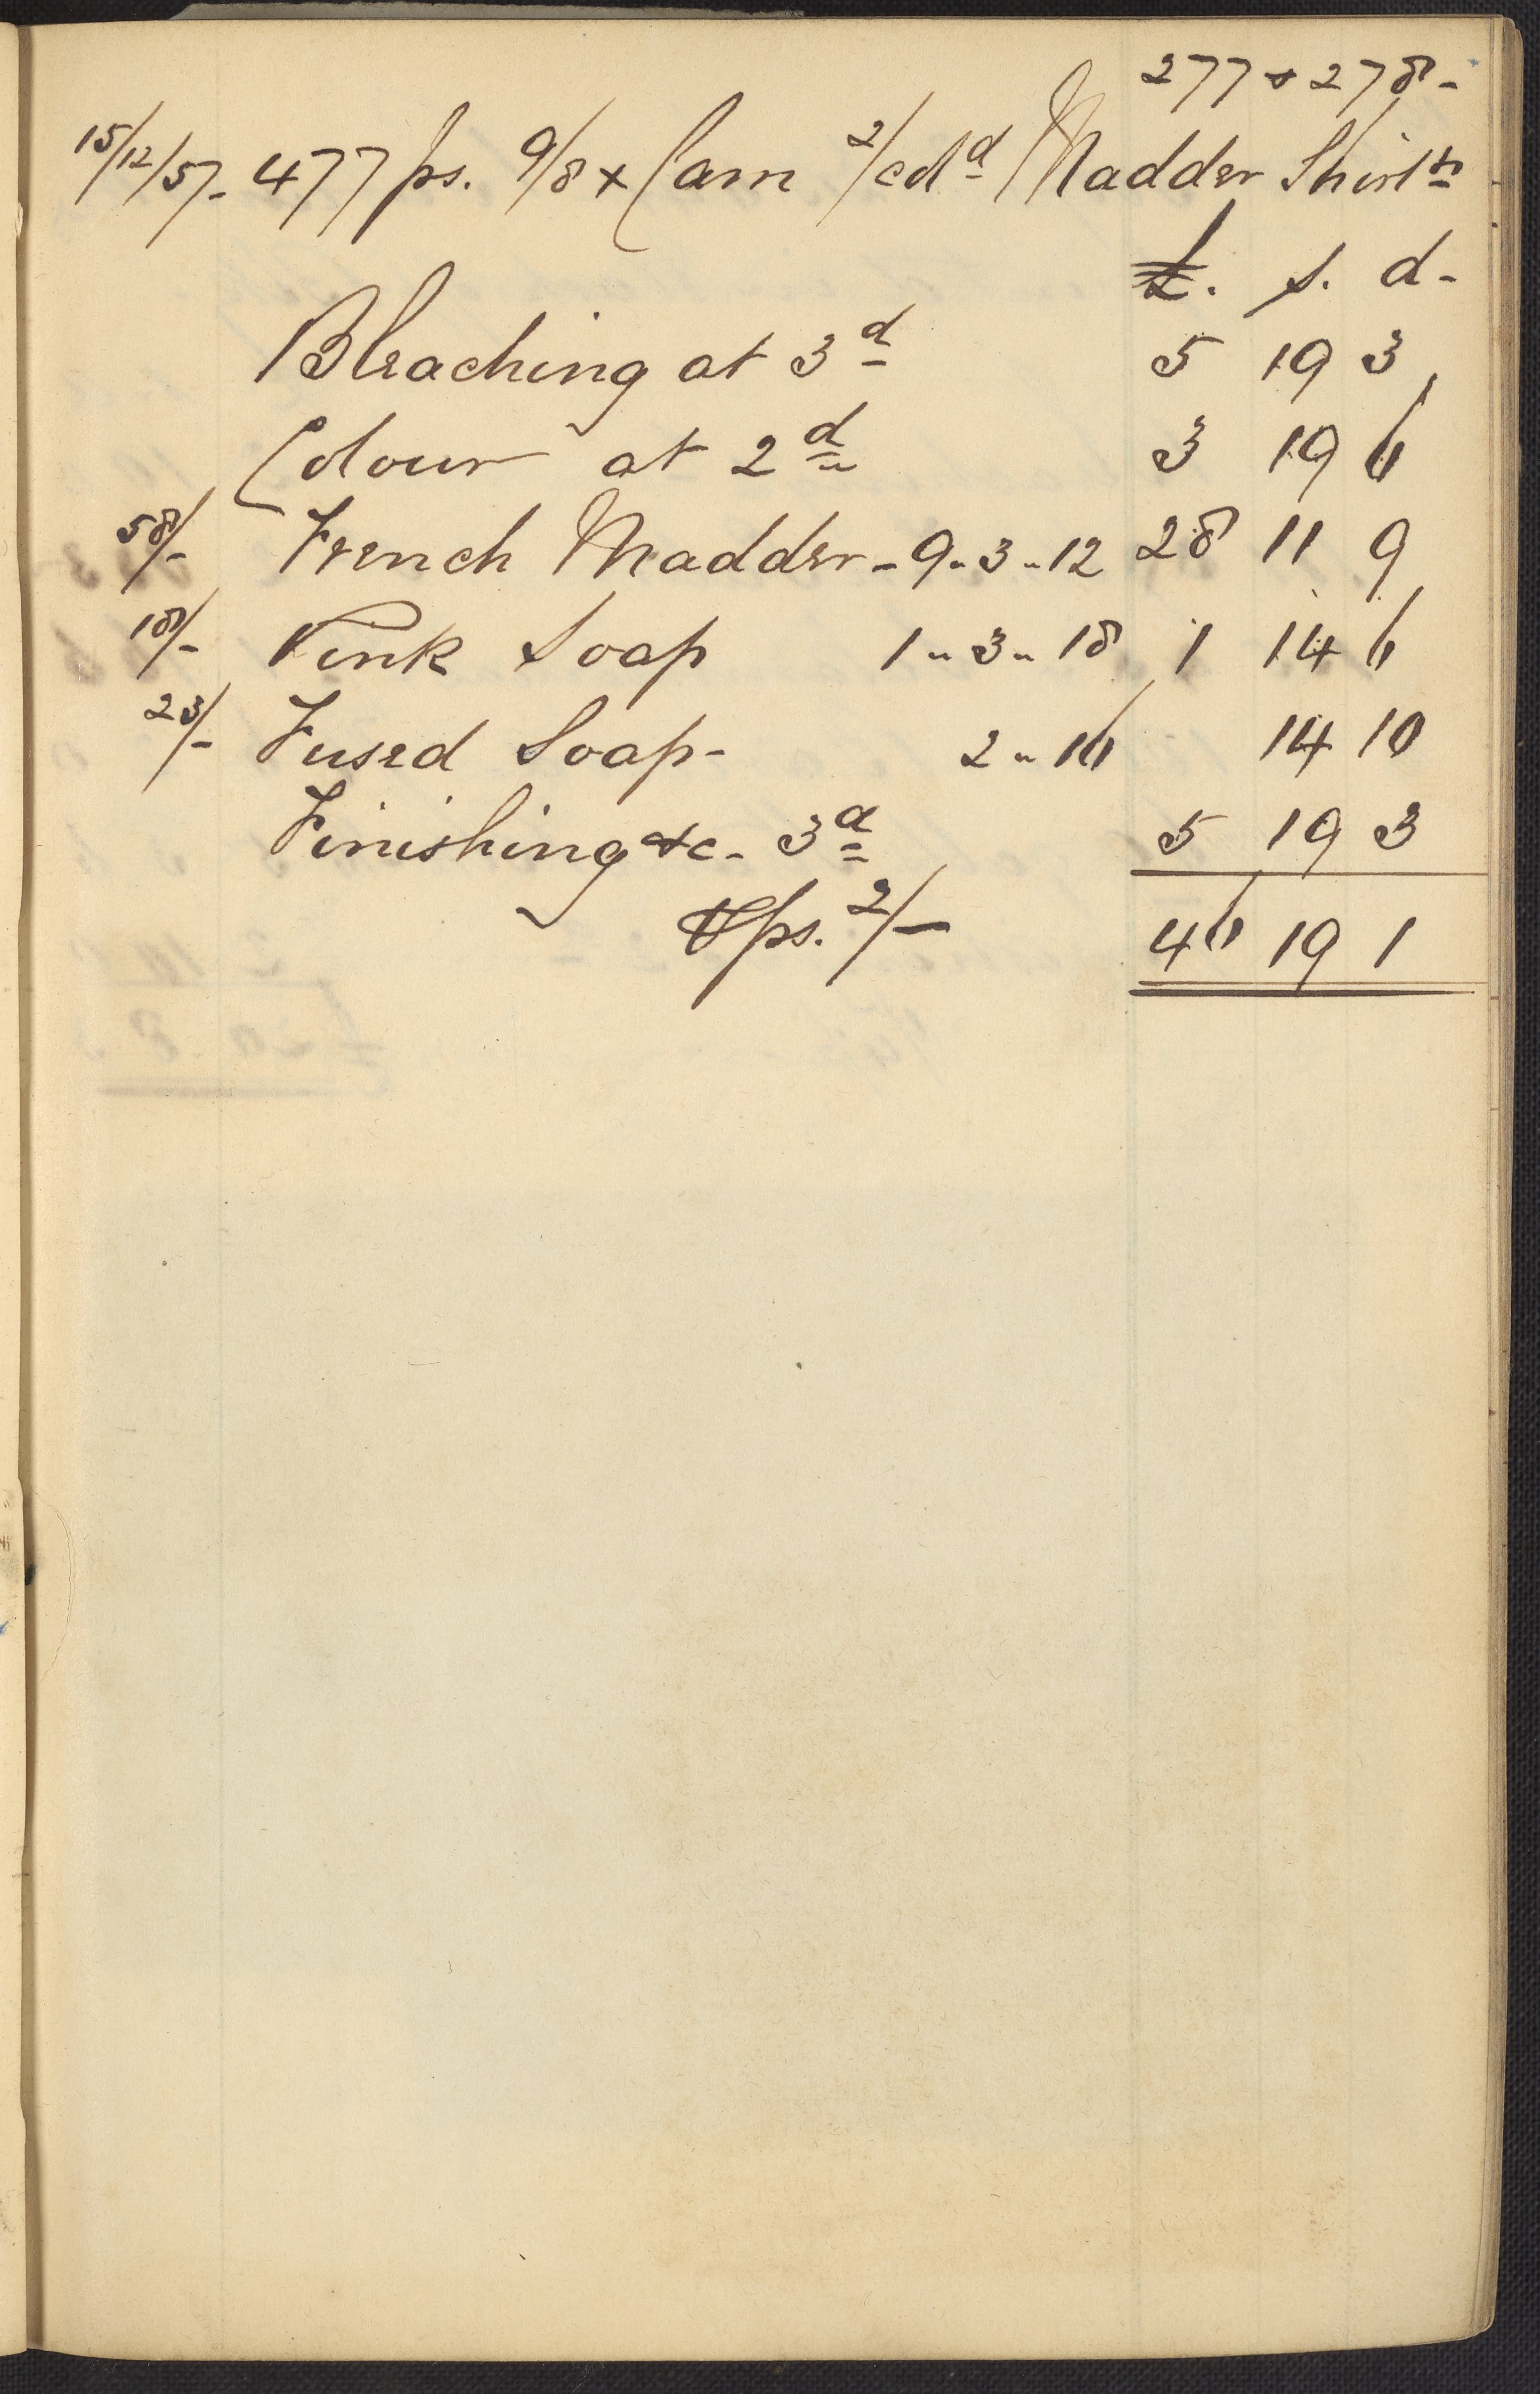 277 & 278-
15/12/57- 477 ps. 9/8 x Cam 2/cdd Madder Shirtgs
£. s. d-
Bleaching at 3d 5 19 3
Colour at 2d 3 19 6
58/- French Madder - 9 " 3 " 12 28 11 9
18/- Pink Soap 1 " 3 " 18 1 14 6
23/- Fused Soap - 2 " 16 14 10
Finishing &c - 3d 5 19 3
ps. 2/- 46 19 1